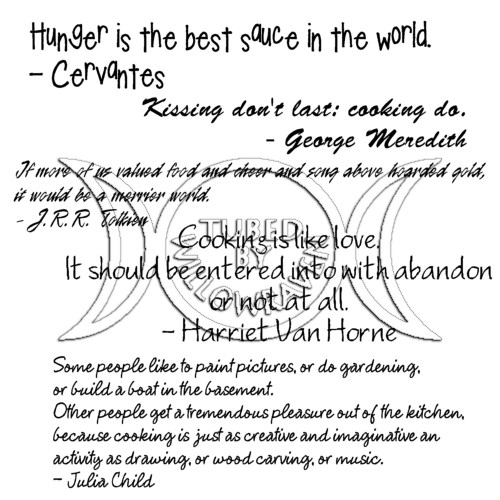 Hunger is the best sauce in the world.
- Cervantes
Kissing don't last: cooking do.
- George Meredith
If more of us valued food and cheer and song above hoarded gold,
it would be a merrier world.
- J.R.R. Tolkien
TUBED
BY
WILLOWRAVEN
Cooking is like love.
It should be entered into with abandon
or not at all.
- Harriet Van Horne
Some people like to paint pictures, or do gardening,
or build a boat in the basement.
Other people get a tremendous pleasure out of the kitchen,
because cooking is just as creative and imaginative an
activity as drawing, or wood carving, or music.
- Julia Child